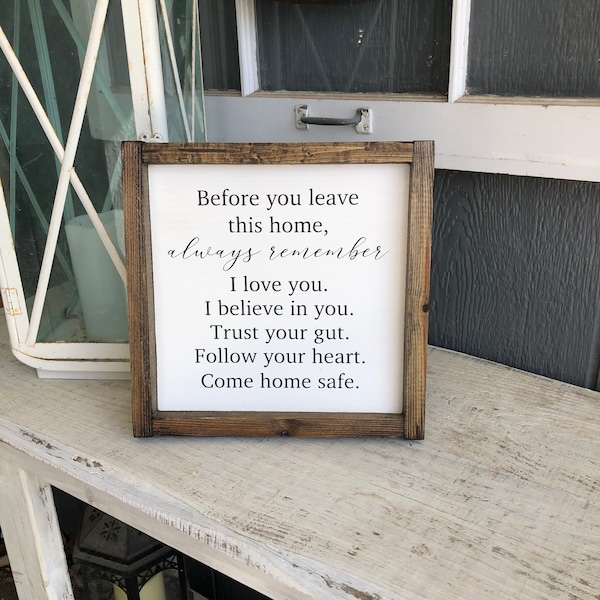 Before you leave
this home,
always remember
I love you.
I believe in you.
Trust your gut.
Follow your heart.
Come home safe.